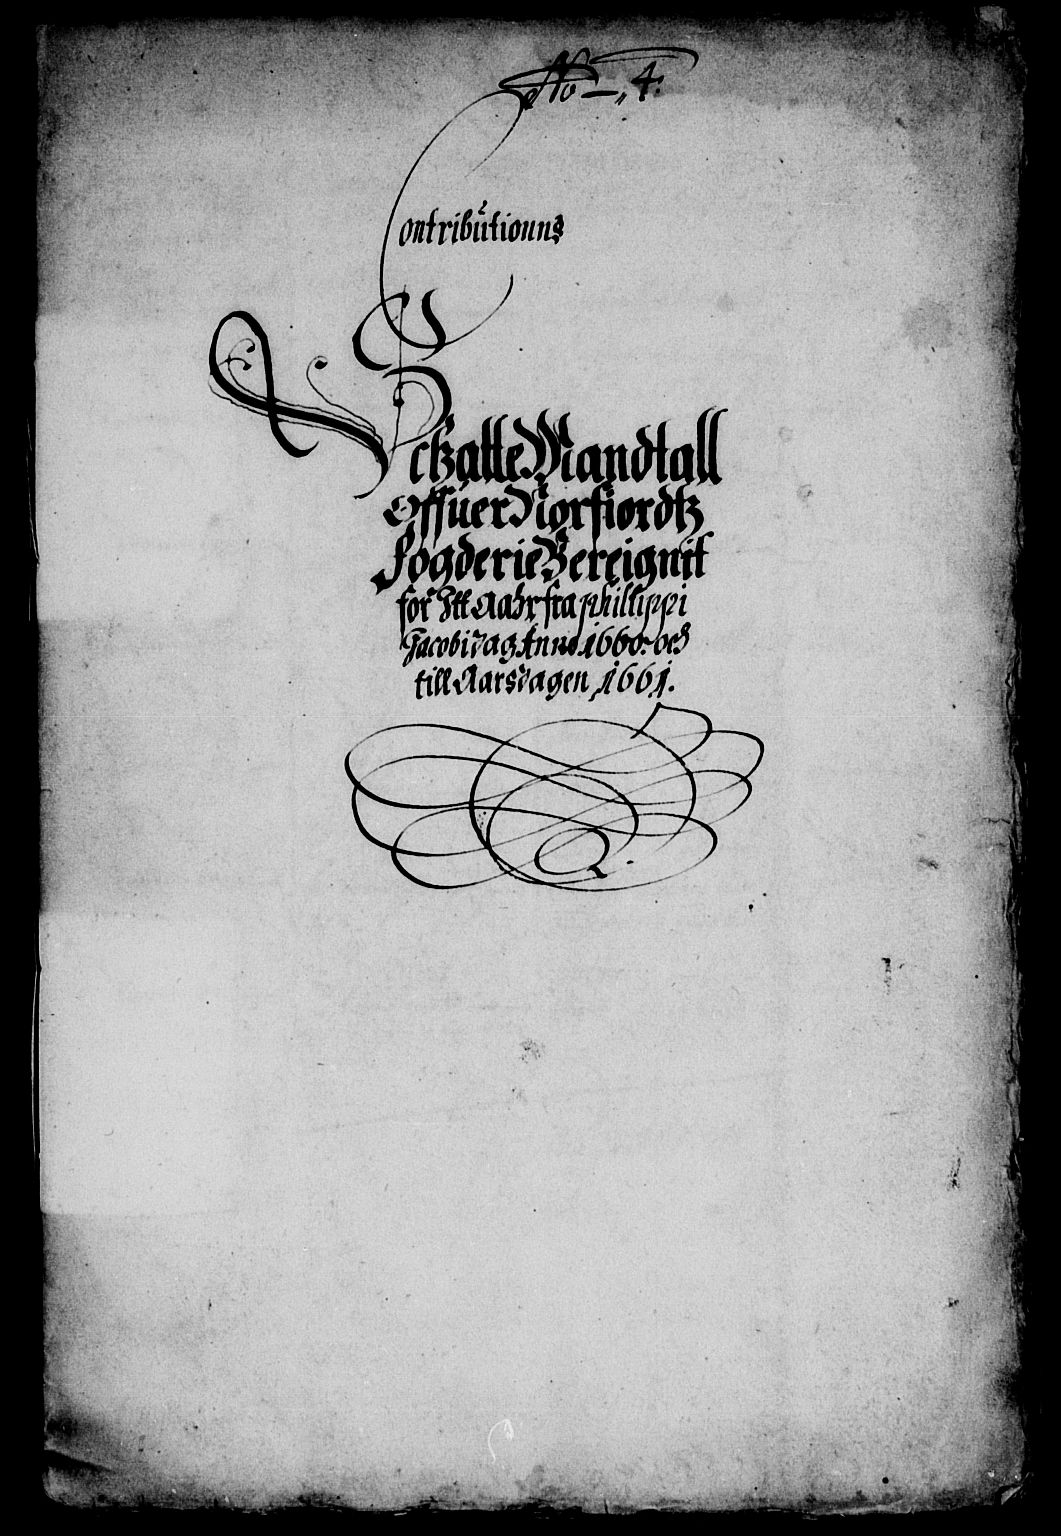 No 4:
Contributionns
Sckatte Mandtall
Offuer Norfiordtz
Fogderie Bereignit
for Itt Aahr fra phillippi
Jacobi dag Anno 1660. och
till Aarsdagen 1661.